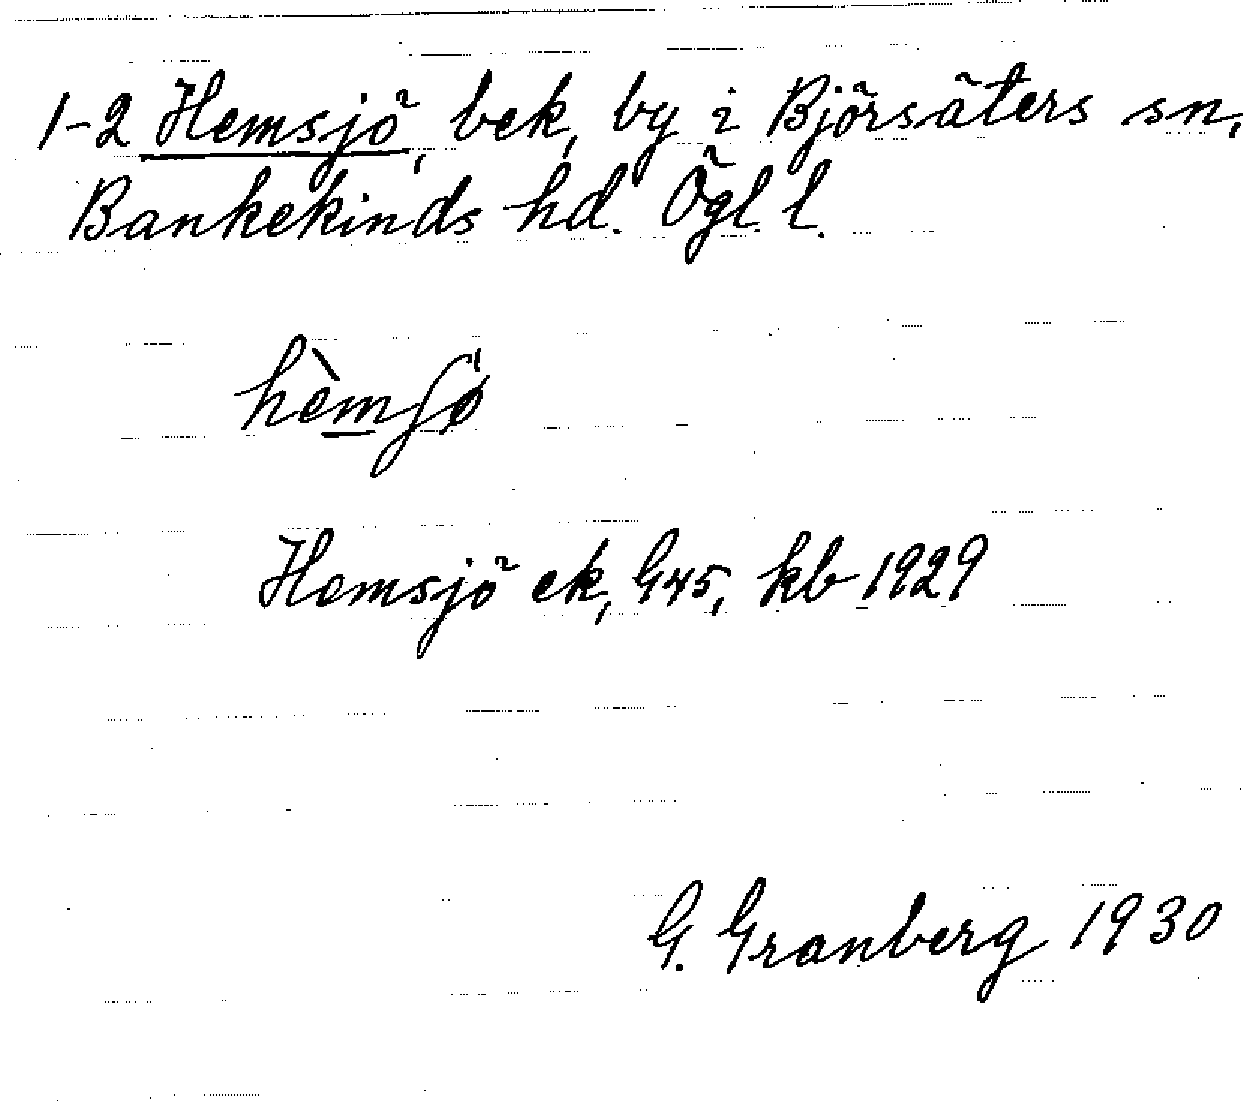 1-2 Hemsjö, bek, by i Björsäters sn,
Bankekinds hd. Ögl. l.
hèmʃø
Hemsjö ek, G45, kb 1929
G. Granberg 1930